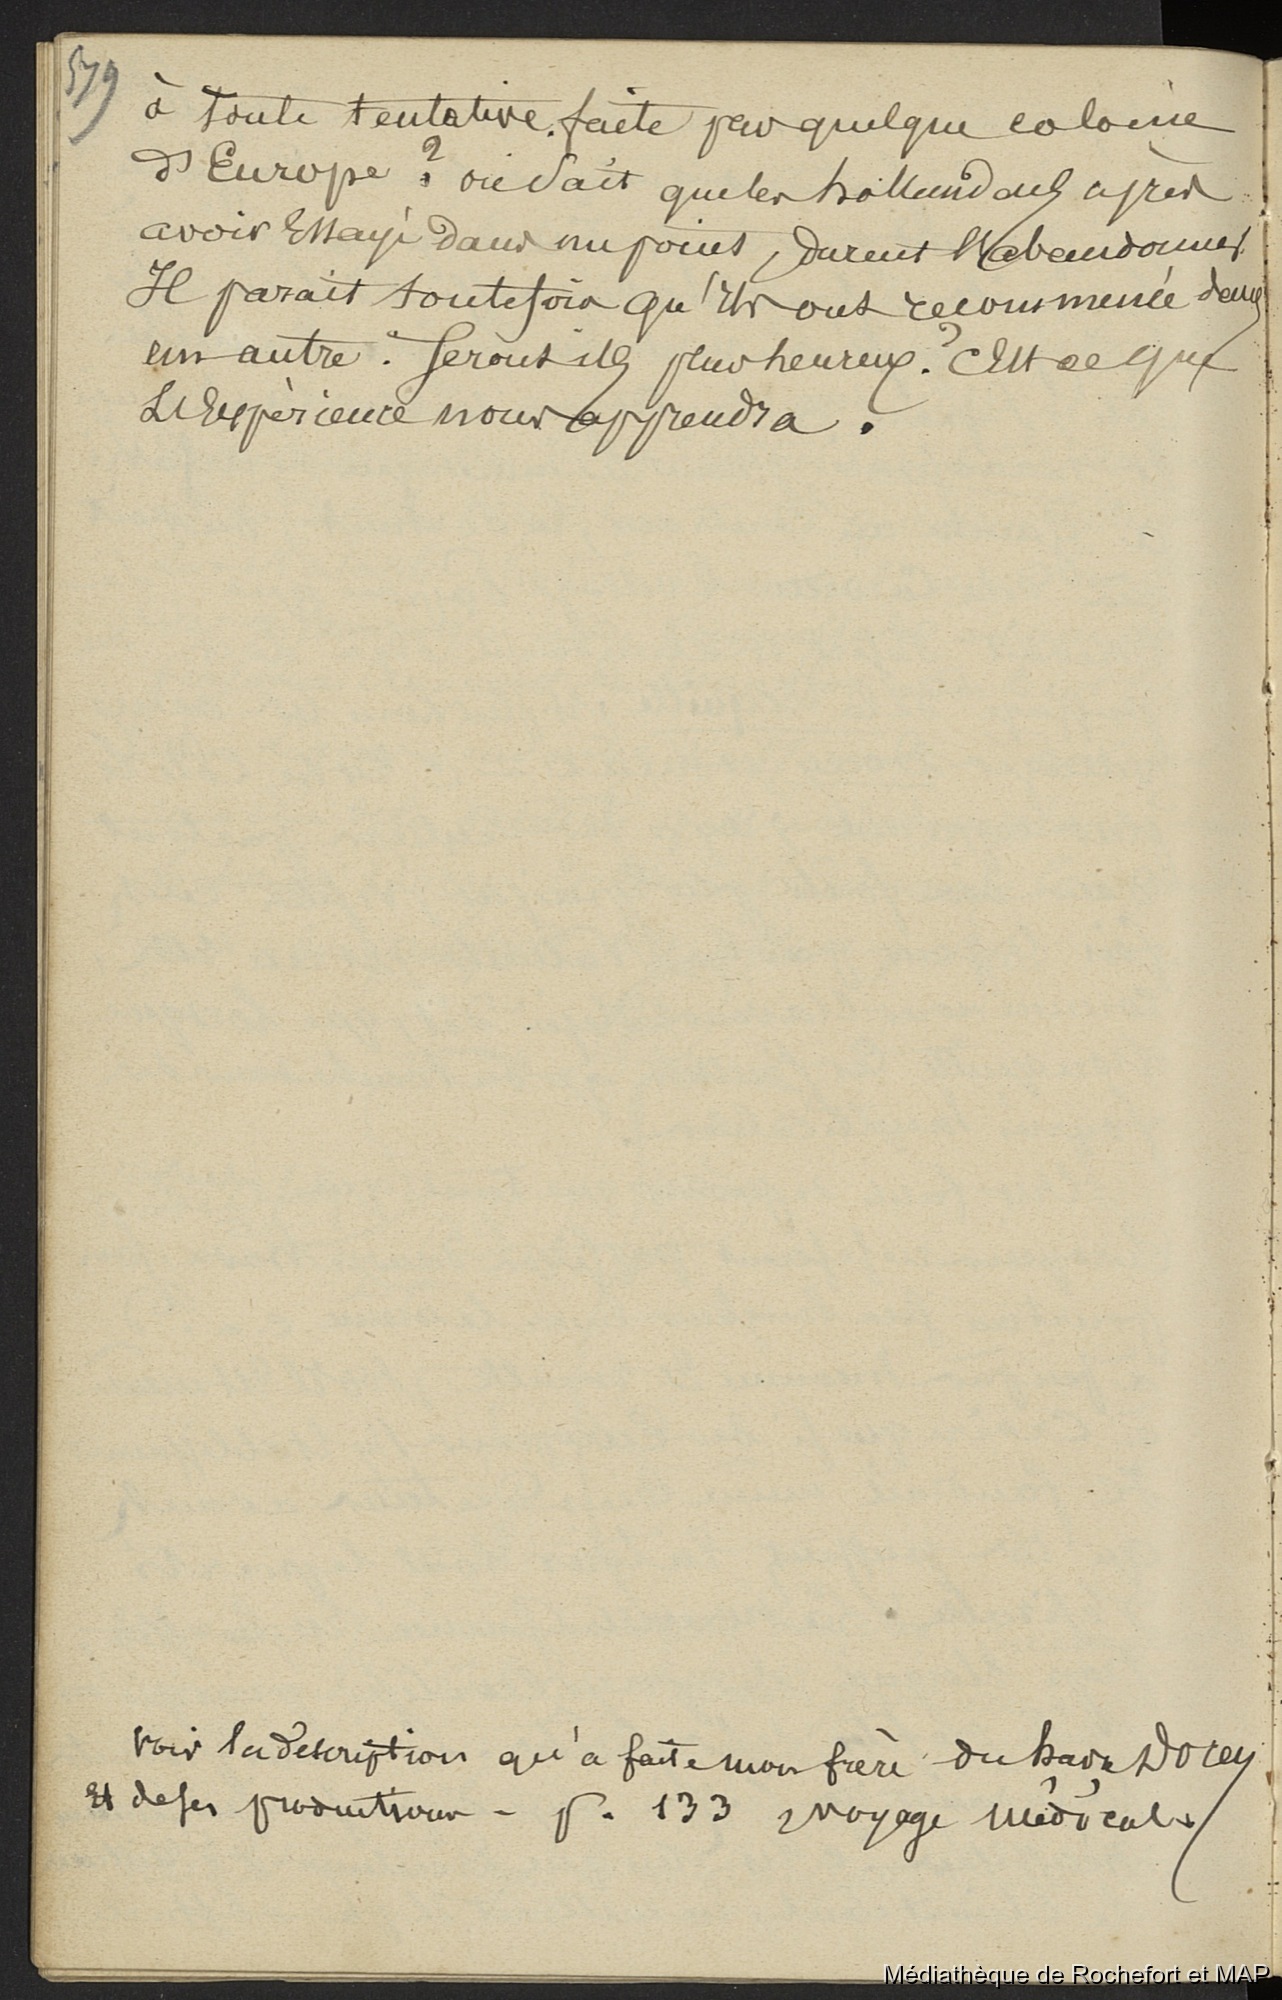 579
à toute tentative faite par quelque colonie
d'Europe ? on sait que les hollandais après
avoir Essayé dans un point, durent l'abandonner.
Il parait toutefois qu'ils ont recommencé dans
un autre. Seront ils plus heureux ? C'Est ce que
L'Expèrience nous apprendra .
voir la description qu'a faite mon frère du havre Dorey
Et de ses productions - p. 133 voyage médical
Médiathèque de Rochefort et MAP